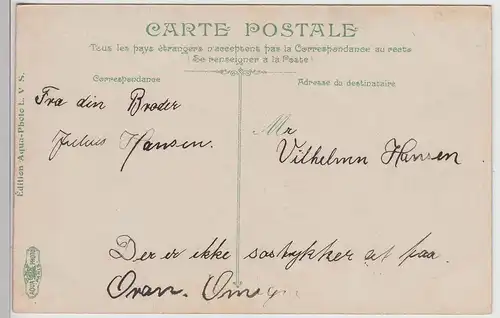 CARTE POSTALE
Tous les pays étrangers n'acceptent pas la Correspondance au recto
(Se renseigner à la Poste)
Correspondance
Adresse du destinataire
Fra din Broder
Julius Hansen.
Mr
Vilhelmn Hansen
Der er ikke
paa
Oran.
Edition Aqua-Photo L. V. S.